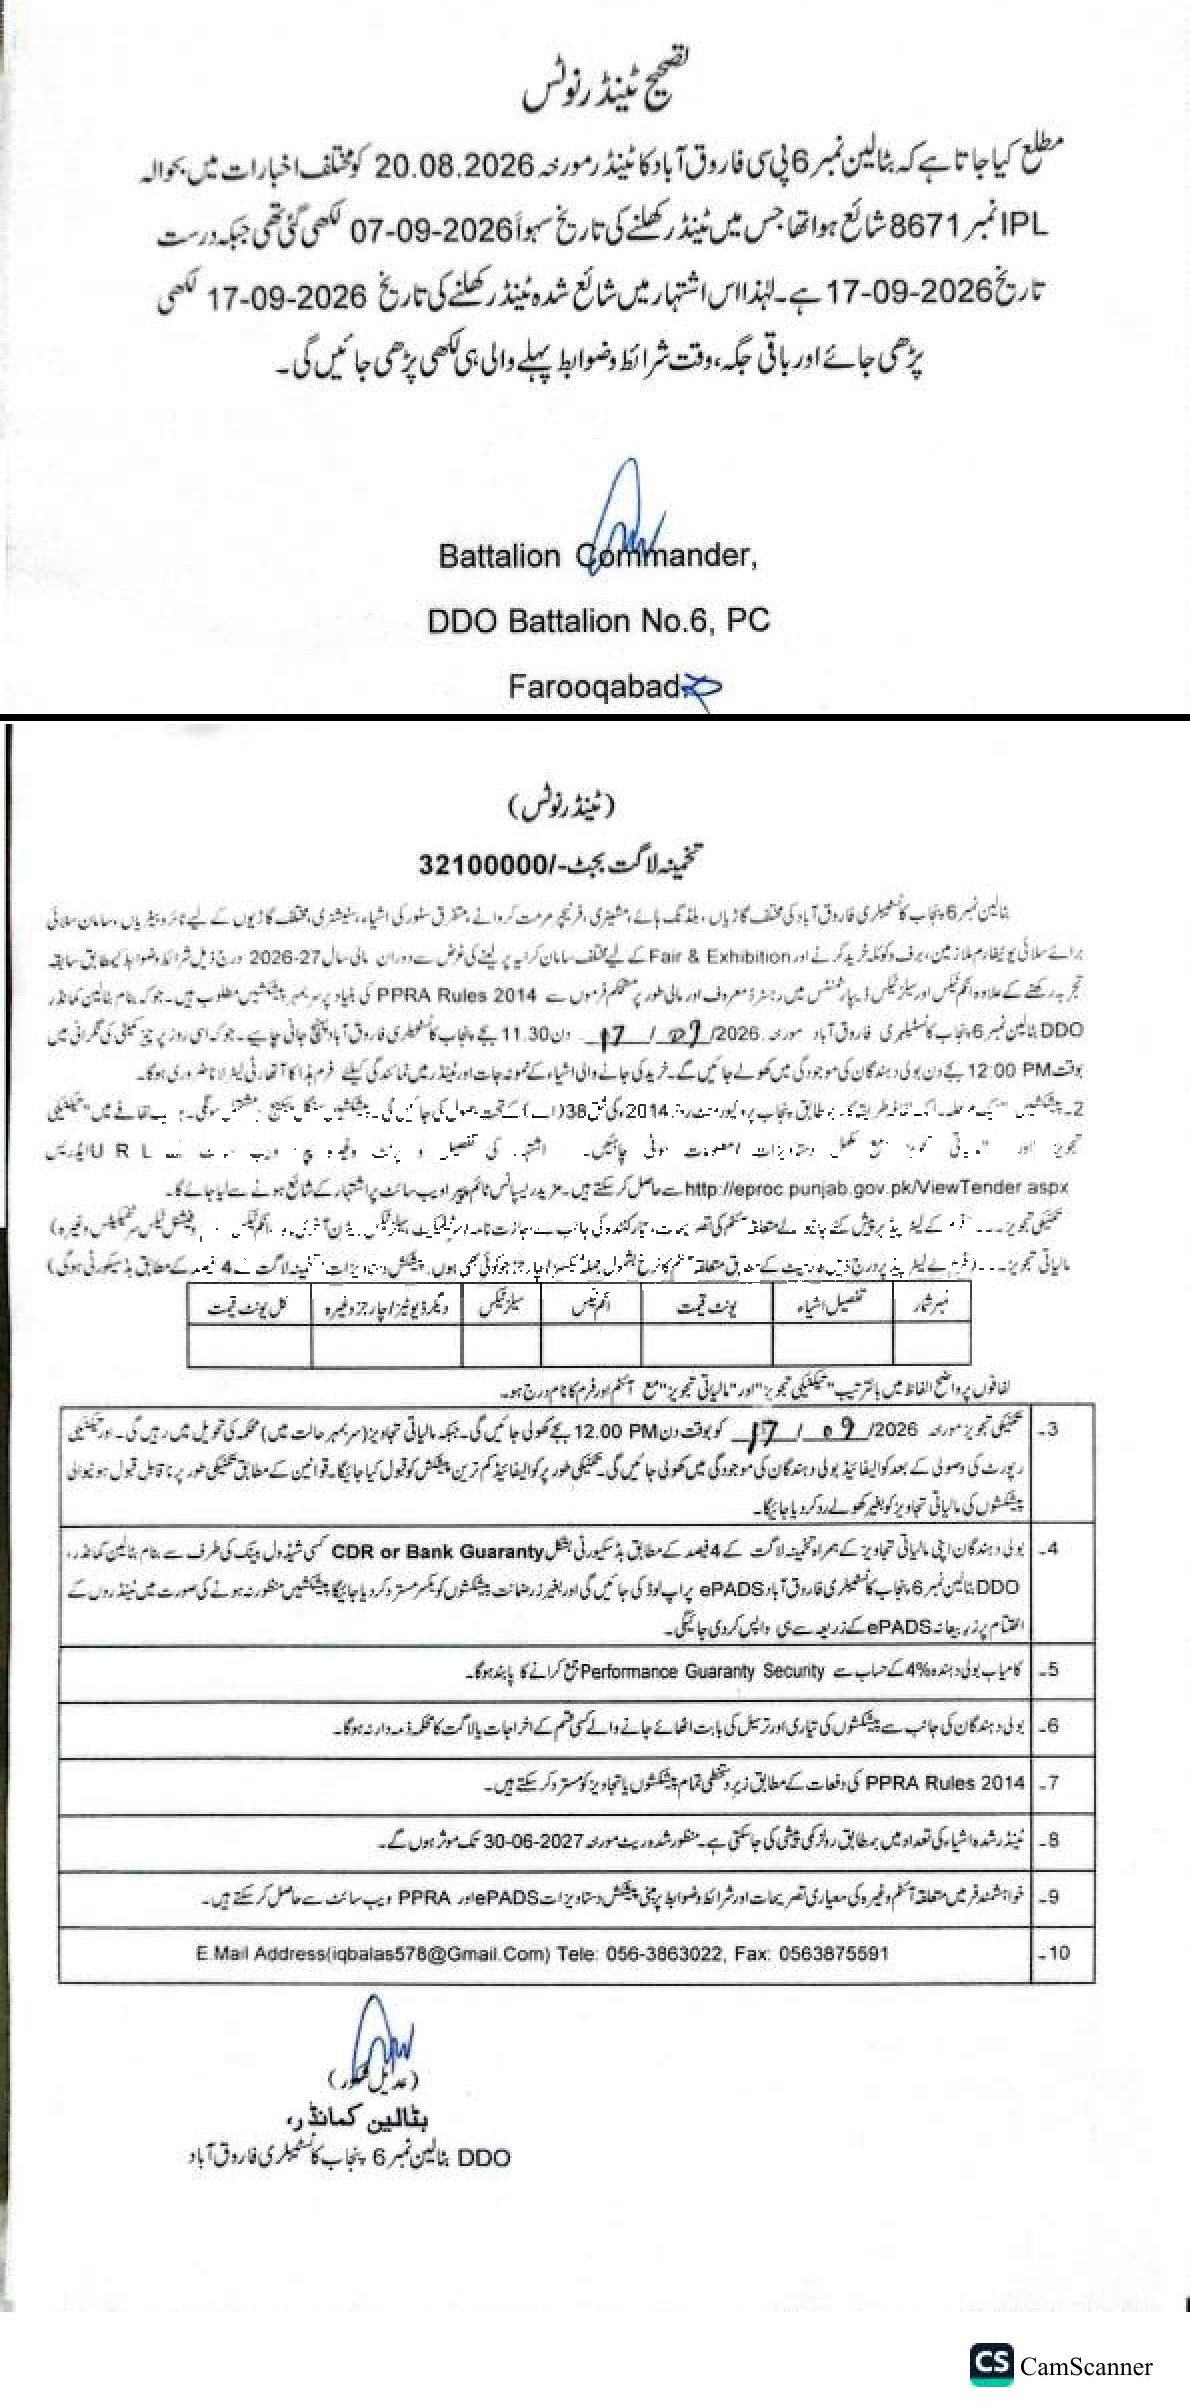 تصحیح ٹینڈر نوٹس
مطلع کیا جاتا ہے کہ بٹالین نمبر 6 پی سی فاروق آباد کا ٹینڈر مورخہ 20.08.2026 کو مختلف اخبارات میں بحوالہ
IPL نمبر 8671 شائع ہوا تھا جس میں ٹینڈر کھلنے کی تاریخ سہواً 07-09-2026 لکھی گئی تھی جبکہ درست
تاریخ 17-09-2026 ہے۔ لہٰذا اس اشتہار میں شائع شدہ ٹینڈر کھلنے کی تاریخ 17-09-2026 لکھی
پڑھی جائے اور باقی جگہ، وقت شرائط و ضوابط پہلے والی ہی لکھی پڑھی جائیں گی۔
Battalion Commander,
DDO Battalion No.6, PC
Farooqabad.
(ٹینڈر نوٹس)
تخمینہ لاگت بجٹ -/32100000
بٹالین نمبر 6 پنجاب کانسٹیبلری فاروق آباد کی مختلف گاڑیاں، بلڈنگ ہائے، مشینری، فرنیچر مرمت کروانے، متفرق سٹور کی اشیاء، سٹیشنری، مختلف گاڑیوں کے لیے ٹائرہ بیٹریاں، سامان سلائی
برائے سلائی یونیفارم ملازمین، برف و کوئلہ خرید کرنے اور Fair & Exhibition کے لیے مختلف سامان کرایہ پر لینے کی غرض سے دوران مالی سال 2026-27 درج ذیل شرائط و ضوابط کیمطابق سابقہ
تجربہ رکھنے کے علاوہ انکم ٹیکس اور سیلز ٹیکس ڈیپارٹمنٹس میں رجسٹرڈ معروف اور مالی طور پر مستحکم فرموں سے PPRA Rules 2014 کی بنیاد پر سربمہر پیشکشیں مطلوب ہیں۔ جو کہ بنام بٹالین کمانڈر
DDO بٹالین نمبر 6 پنجاب کانسٹیبلری فاروق آباد مورخہ 17/09/2026 دن 11.30 بجے پنجاب کانسٹیبلری فاروق آباد پہنچ جانی چاہیے۔ جو کہ اسی روز پرچیز کمیٹی کی نگرانی میں
بوقت 12:00 PM بجے دن بولی دہندگان کی موجودگی میں کھولے جائیں گے۔ خرید کی جانے والی اشیاء کے نمونہ جات اور ٹینڈر میں نمائندگی کیلئے فرم ہذا کا اتھارٹی لیٹر لانا ضروری ہوگا۔
2۔ پیشکشیں کے تحت وصول کی جائیں گی۔ پیشکشیں سنگل پیکیج پر مشتمل ہوگی۔
اشتہار کی تفصیل URL ایڈریس
http://eproc.punjab.gov.pk/ViewTender.aspx سے حاصل کر سکتے ہیں۔ مزید ریسپانس ٹائم پیپرا ویب سائٹ پر اشتہار کے شائع ہونے سے لیا جائے گا۔
تکنیکی تجویز۔۔۔
مالیاتی تجویز۔۔۔ تخمینہ لاگت کے 4 فیصد کے مطابق بڈ سیکورٹی ہوگی)
نمبر شمار تفصیل اشیاء یونٹ قیمت انکم ٹیکس سیلز ٹیکس دیگر ڈیوٹیز/چارجز وغیرہ کل یونٹ قیمت
لفافوں پر واضح الفاظ میں بالترتیب "تیکنیکی تجویز" اور "مالیاتی تجویز" مع آئٹم اور فرم کا نام درج ہو۔
3۔ تکنیکی تجویز مورخہ 17/09/2026 کو بوقت دن 12.00 PM بجے کھولی جائیں گی۔ جبکہ مالیاتی تجاویز (سربمہر حالت میں) محکمہ کی تحویل میں رہیں گی۔ اور تیکنیکی
رپورٹ کی وصولی کے بعد کوالیفائیڈ بولی دہندگان کی موجودگی میں کھولی جائیں گی۔ تکنیکی طور پر کوالیفائیڈ کم ترین پیشکش کو قبول کیا جائیگا۔ قوانین کے مطابق تکنیکی طور پر ناقابل قبول ہونیوالی
پیشکشوں کی مالیاتی تجاویز کو بغیر کھولے رد کر دیا جائیگا۔
4۔ بولی دہندگان اپنی مالیاتی تجاویز کے ہمراہ تخمینہ لاگت کے 4 فیصد کے مطابق بڈ سیکیورٹی بشکل CDR or Bank Guaranty کسی شیڈول بینک کی طرف سے بنام بٹالین کمانڈر،
DDO بٹالین نمبر 6 پنجاب کانسٹیبلری فاروق آباد ePADS پر اپ لوڈ کی جائیں گی اور بغیر زر ضمانت پیشکشوں کو یکسر مسترد کر دیا جائیگا پیشکشیں منظور نہ ہونے کی صورت میں ٹینڈروں کے
اختتام پر زر بیعانہ ePADS کے ذریعہ سے ہی واپس کر دی جائیگی۔
5۔ کامیاب بولی دہندہ 4% کے حساب سے Performance Guaranty Security جمع کرانے کا پابند ہوگا۔
6۔ بولی دہندگان کی جانب سے پیشکشوں کی تیاری اور ترسیل کی بابت اٹھائے جانے والے کسی قسم کے اخراجات یا لاگت کا محکمہ ذمہ دار نہ ہوگا۔
7۔ PPRA Rules 2014 کی دفعات کے مطابق زیر دستخطی تمام پیشکشوں یا تجاویز کو مسترد کر سکتے ہیں۔
8۔ ٹینڈر شدہ اشیاء کی تعداد میں بمطابق رولز کمی بیشی کی جاسکتی ہے۔ منظور شدہ ریٹ مورخہ 30-06-2027 تک موثر ہوں گے۔
9۔ خواہشمند فرمیں متعلقہ آئٹم وغیرہ کی معیاری تصریحات اور شرائط و ضوابط پر مبنی پیشکش دستاویزات ePADS اور PPRA ویب سائٹ سے حاصل کر سکتے ہیں۔
10۔ E.Mail Address(iqbalas578@Gmail.Com) Tele: 056-3863022, Fax: 0563875591
بٹالین کمانڈر،
DDO بٹالین نمبر 6 پنجاب کانسٹیبلری فاروق آباد
CS CamScanner